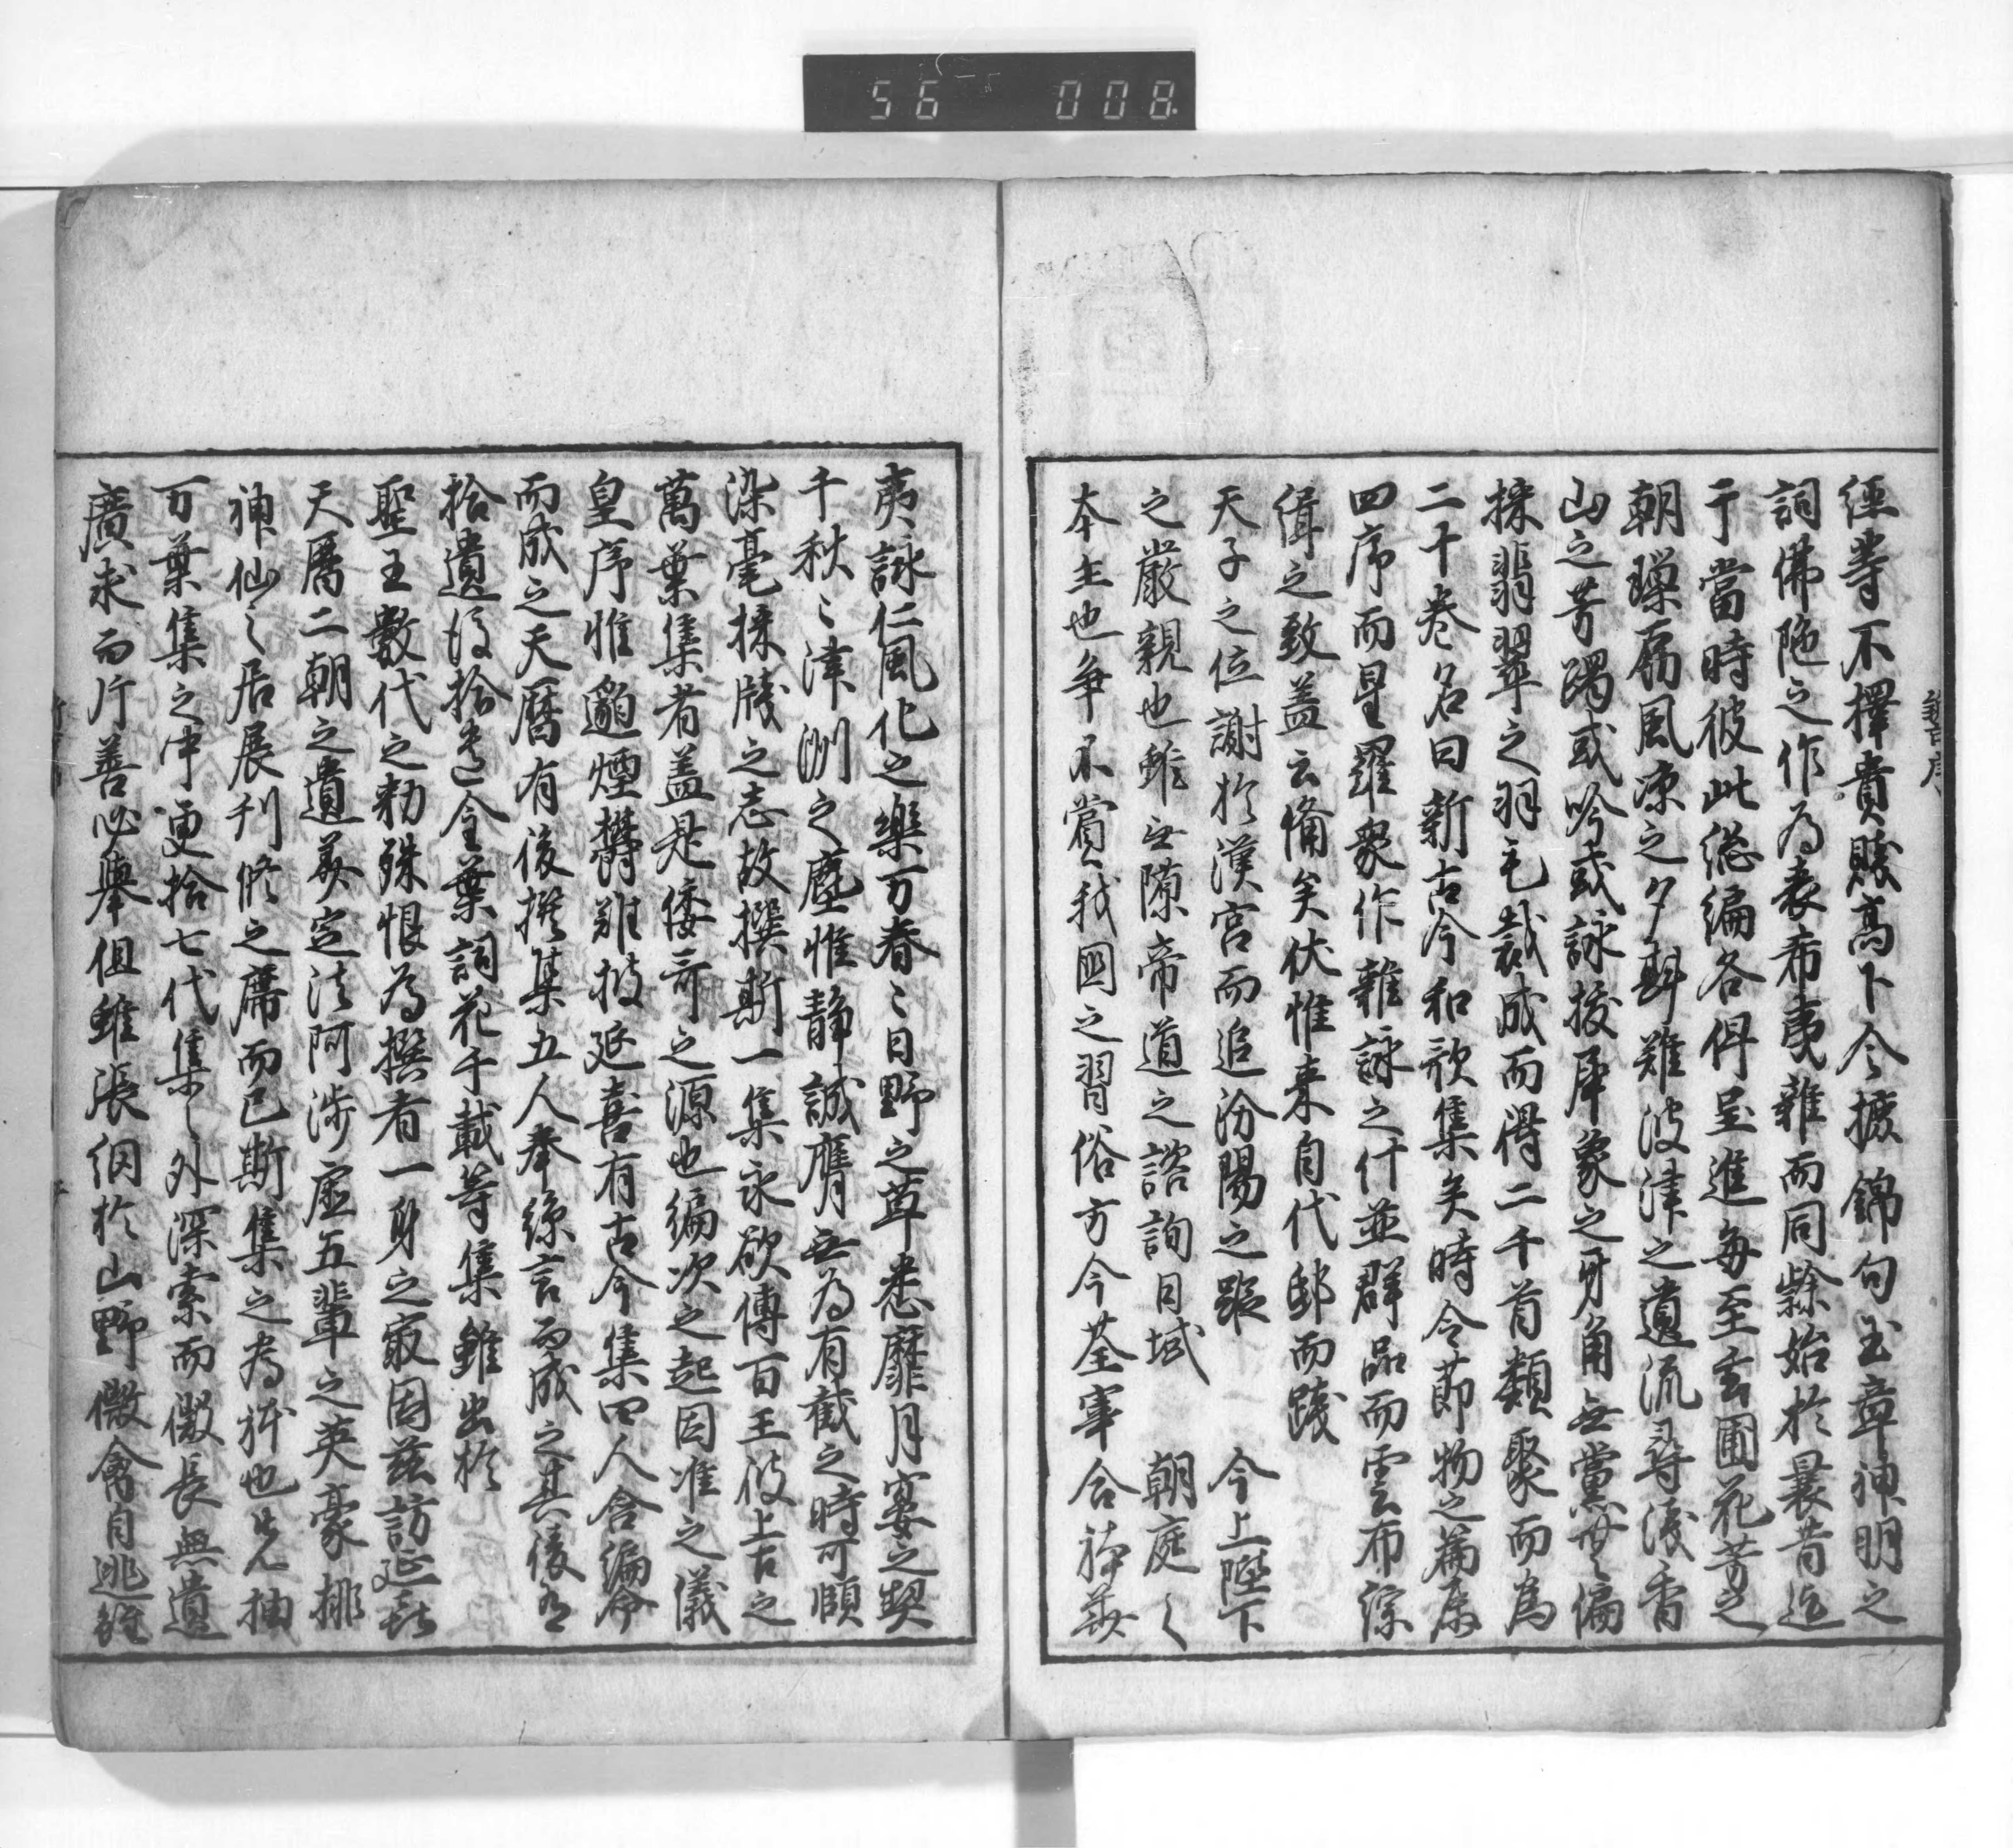 56 008
經等不擇貴賤高下令摭錦句玉章神明之
詞佛陁之作為表希夷雜而同隸始於曩昔迄
于當時彼此總編各俾呈進每至玄圃花芳之
朝璅砌風凉之夕斟難波津之遺流尋淺香
山之芳躅或吟或詠拔犀象之牙角無黨無偏
採翡翠之羽毛裁成而得二千首類聚而為
二十卷名曰新古今和歌集矣時令莭物之篇屬
四序而星羅衆作雜詠之什並群品而雲布綜
緝之致盖云備矣伏惟来自代邸而踐
天子之位謝於漢宮而追汾陽之蹤　今上陛下
之嚴親也雖無隙帝道之諮詢日域　朝庭之
本主也争不賞我國之習俗方今荃宰合体華
夷詠仁風化之樂万春ミ日野之草悉靡月宴之契
千秋ミ津洲之塵惟静誠膺無為有截之時可頤
染毫操牋之志故撰斯一集永欲傳百王彼上古之
萬葉集者盖是倭哥之源也編次之起因准之儀
皇序惟邈煙欝難披延喜有古今集四人含綸命
而成之天曆有後撰集五人奉絲言而成之其後有
拾遺後拾遺金葉詞花千載等集雖出於
聖王數代之勅殊恨為撰者一身之最因茲訪延喜
天曆二朝之遺美定法河渉虚五輩之英豪排
神仙之居展刊脩之席而已斯集之為體也先抽
万葉集之中更拾七代集之外深索而微長無遺
廣求而片善必舉但雖張網於山野微禽自逃雖